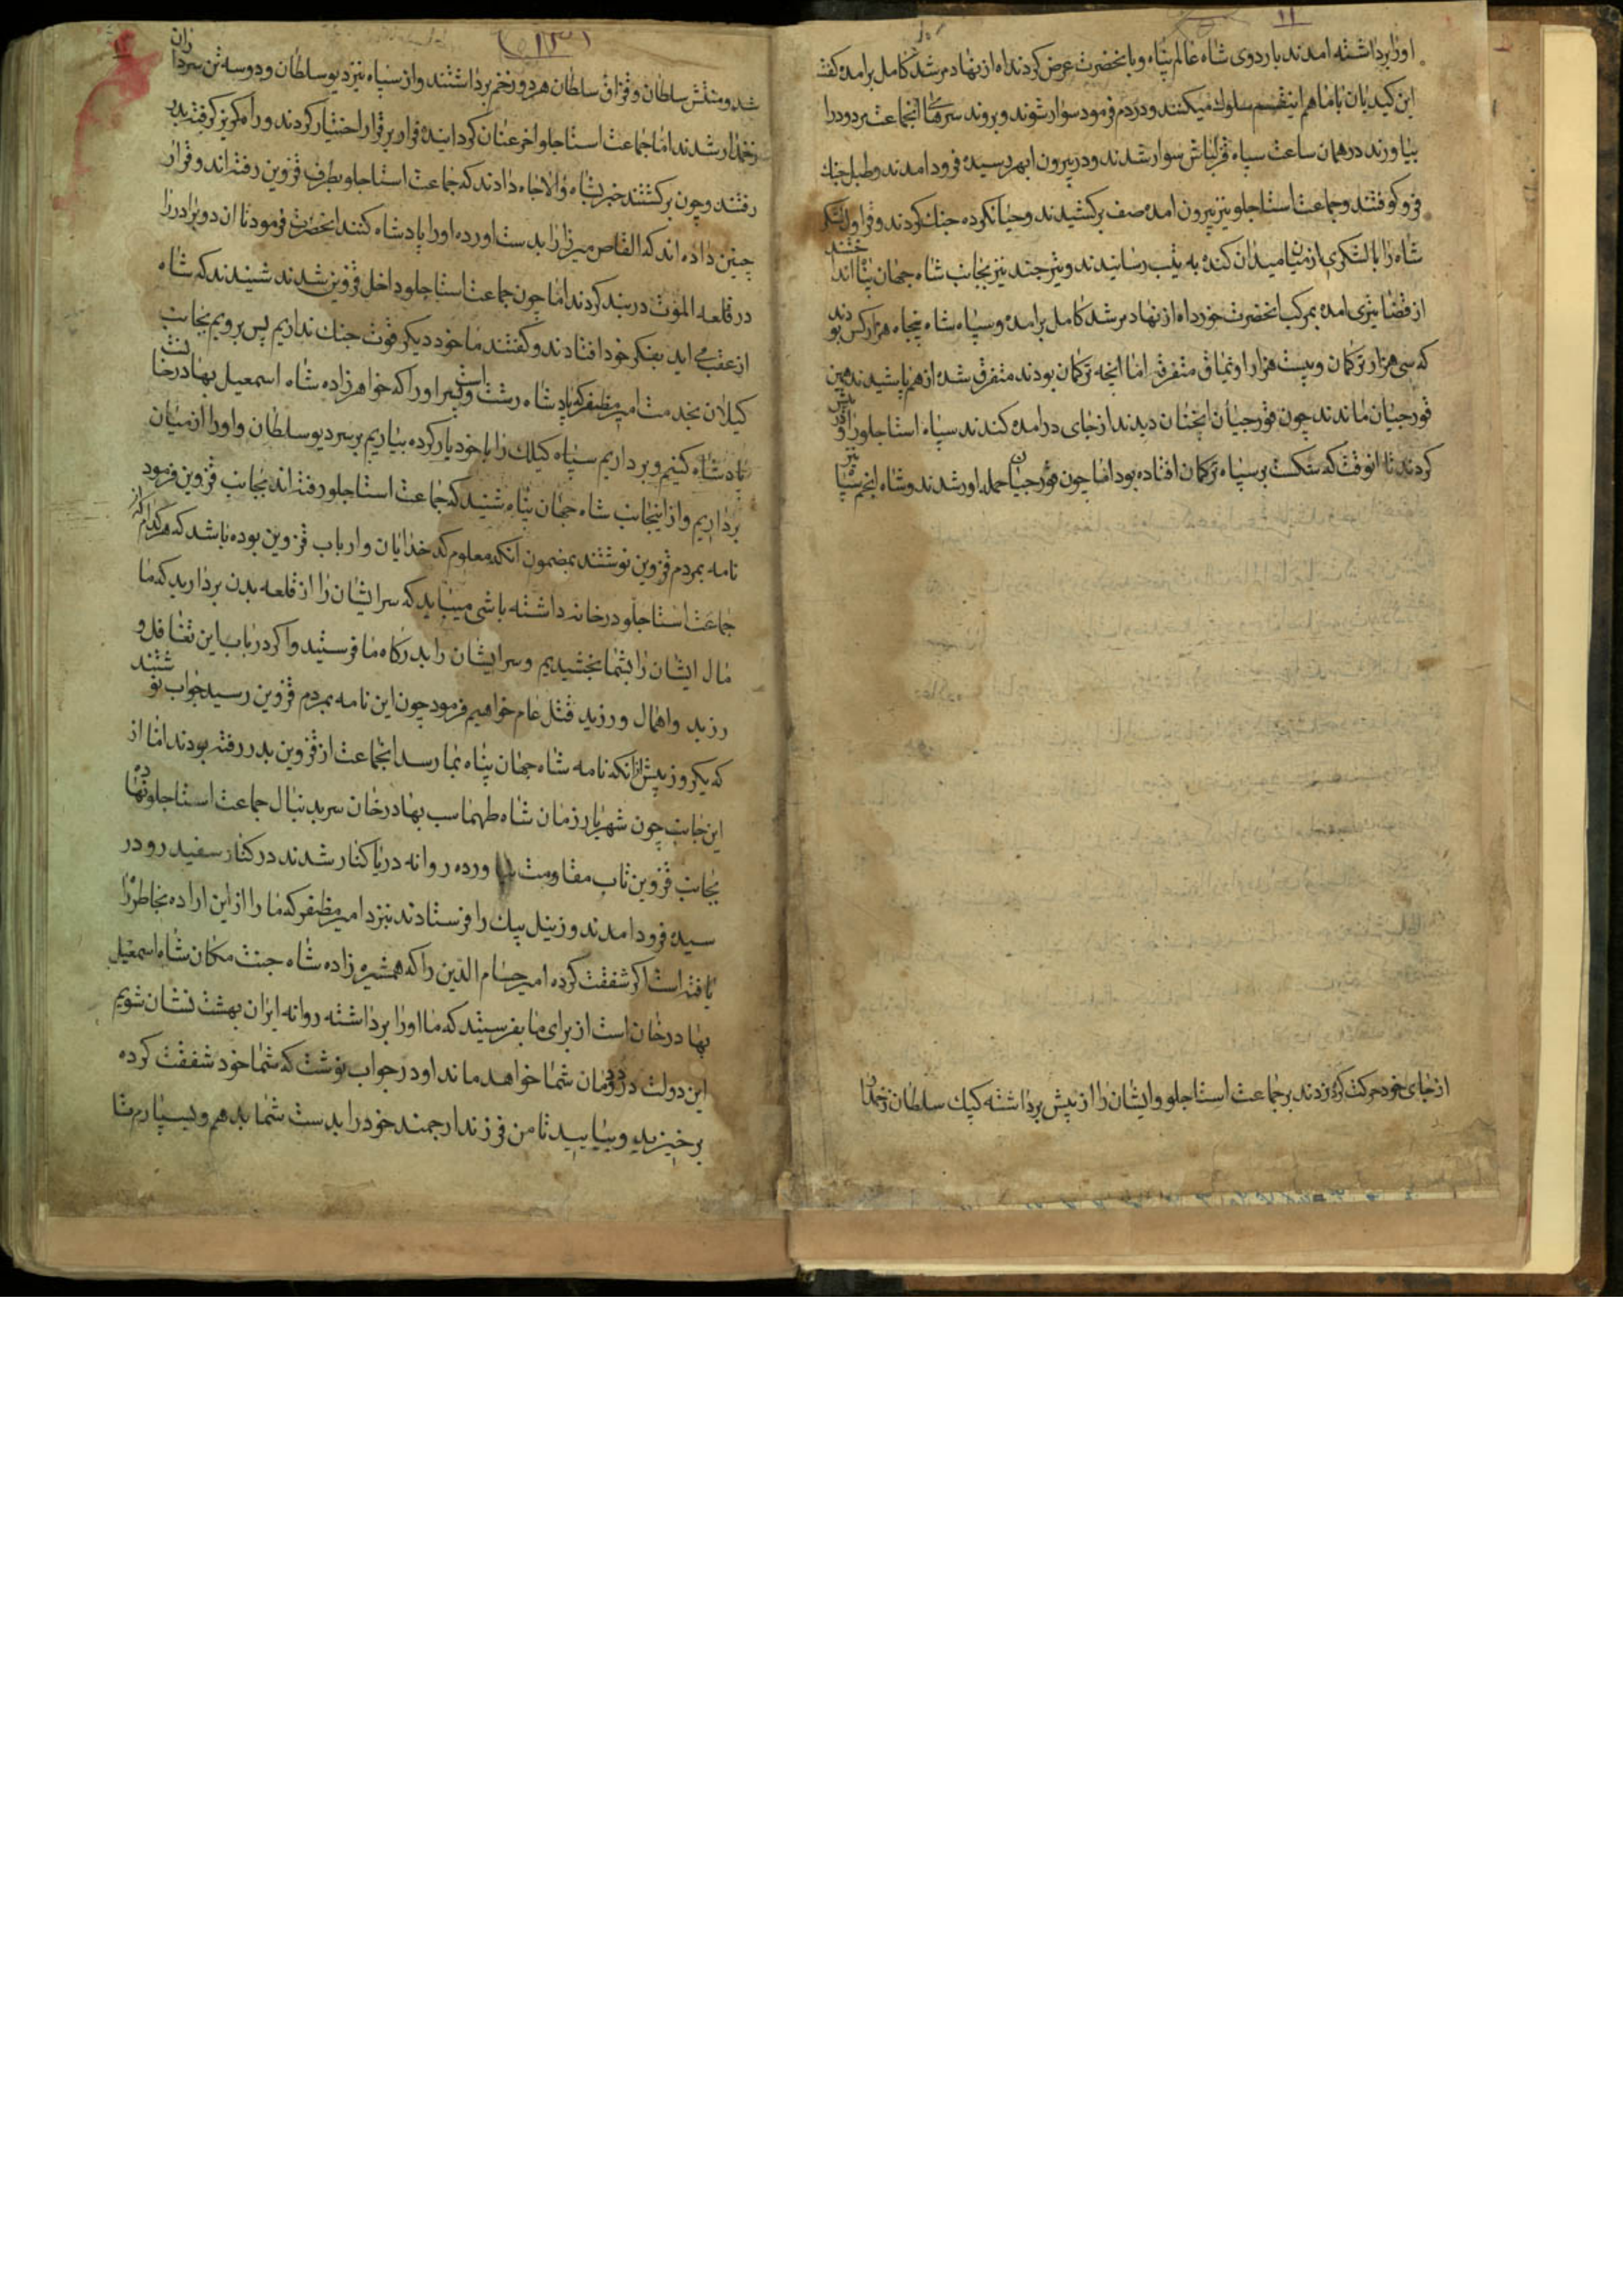 ۱۱
اورا برداشته امدند باردوی شاه عالم پناه و بانحضرت عرض کردند اه از نهاد مرشد کامل برامده گفت
این کیدیان با ما هم اینقسم سلوک میکنند و دردم فرمود سوار شوند و بروند سر انجماعت مردود را
بیاورند در همان ساعت سپاه قزلباش سوار شدند و در بیرون ابهر رسیده فرود امدند و طبل جنک
فرو کوفتند و جماعت استاجلو نیز بیرون امده صف برکشیدند و حیا نکرده جنک کردند و قراول لشکر
شاه را با لشکری از میان میدان کنده به یتب رسانیدند و تیر چند نیز بجانب شاه جهان پناه انداختند
از قضا تیری امده بمرکب انحضرت خورد اه از نهاد مرشد کامل برامده و سپاه شاه پنجاه هزار کس بودند
که سی هزار ترکمان و بیست هزار اویماق متفرقه اما انچه ترکمان بودند متفرق شده از هم پاشیدند همین
قورچیان ماندند چون قورچیان انچنان دیدند از جای درامده کندند سپاه استاجلو را و
کردند تا انوقت که شکست بر سپاه ترکمان افتاده بود اما چون قورچیان حمله اور شدند و شاه انجم سپاه نیز
از جای خود حرکت کرده زدند بر جماعت استاجلو و ایشان را از پیش برداشته کپک سلطان زخمدار
۱۲
شد و منتش سلطان و قزاق سلطان هر دو زخم برداشتند و از سپاه نیز دیو سلطان و دو سه تن سرداران
زخمدار شدند اما جماعت استاجلو اخر عنان کردانیده فرار بر قرار اختیار کردند و راه کریز کرفته بدر
رفتند و چون برکشتند خبر بشاه والا جاه دادند که جماعت استاجلو بطرف قزوین رفته اند و قرار
چنین داده اند که القاص میرزا را بدست اورده اورا پادشاه کنند انحضرت فرمود تا ان دو برادر را
در قلعه الموت در بند کردند اما چون جماعت استاجلو داخل قزوین شدند شنیدند که شاه
از عقب می اید بفکر خود افتادند و کفتند ما خود دیکر قوت جنک نداریم پس برویم بجانب
کیلان بخدمت امیر مظفر که پادشاه رشت است و پسر اورا که خواهرزاده شاه اسمعیل بهادر خانست
پادشاه کنیم و برداریم سپاه کیلک را با خود یار کرده بیاریم بر سر دیو سلطان و اورا از میان
برداریم و از اینجانب شاه جهان پناه شنید که جماعت استاجلو رفته اند بجانب قزوین فرمود
نامه بمردم قزوین نوشتند بمضمون انکه معلوم کدخدایان و ارباب قزوین بوده باشد که هر کدام که از
جماعت استاجلو در خانه داشته باشی میباید که سر ایشان را از قلعه بدن بردارید که ما
مال ایشان را بشما بخشیدیم و سر ایشان را بدرکاه ما فرستید و اکر در باب این تغافل و
رزید و اهمال ورزید قتل عام خواهیم فرمود چون این نامه بمردم قزوین رسید جواب نوشتند
که یکروز پیش از انکه نامه شاه جهان پناه بما رسد انجماعت از قزوین بدر رفته بودند اما از
این جانب چون شهریار زمان شاه طهماسب بهادر خان سر بدنبال جماعت استاجلو نهاده
بجانب قزوین تاب مقاومت نیاورده روانه دریا کنار شدند در کنار سفید رود در
سیده فرود امدند و زینل بیک را فرستادند نزد امیر مظفر که ما را از این اراده بخاطر راه
یافته است اکر شفقت کرده امیر حسام الدین را که همشیره زاده شاه جنت مکان شاه اسمعیل
بهادر خان است از برای ما بفرستید که ما اورا برداشته روانه ایران بهشت نشان شویم
این دولت در دودمان شما خواهد ماند او در جواب نوشت که شما خود شفقت کرده
برخیزید و بیایید تا من فرزند ارجمند خود را بدست شما بدهم و بسپارم تا